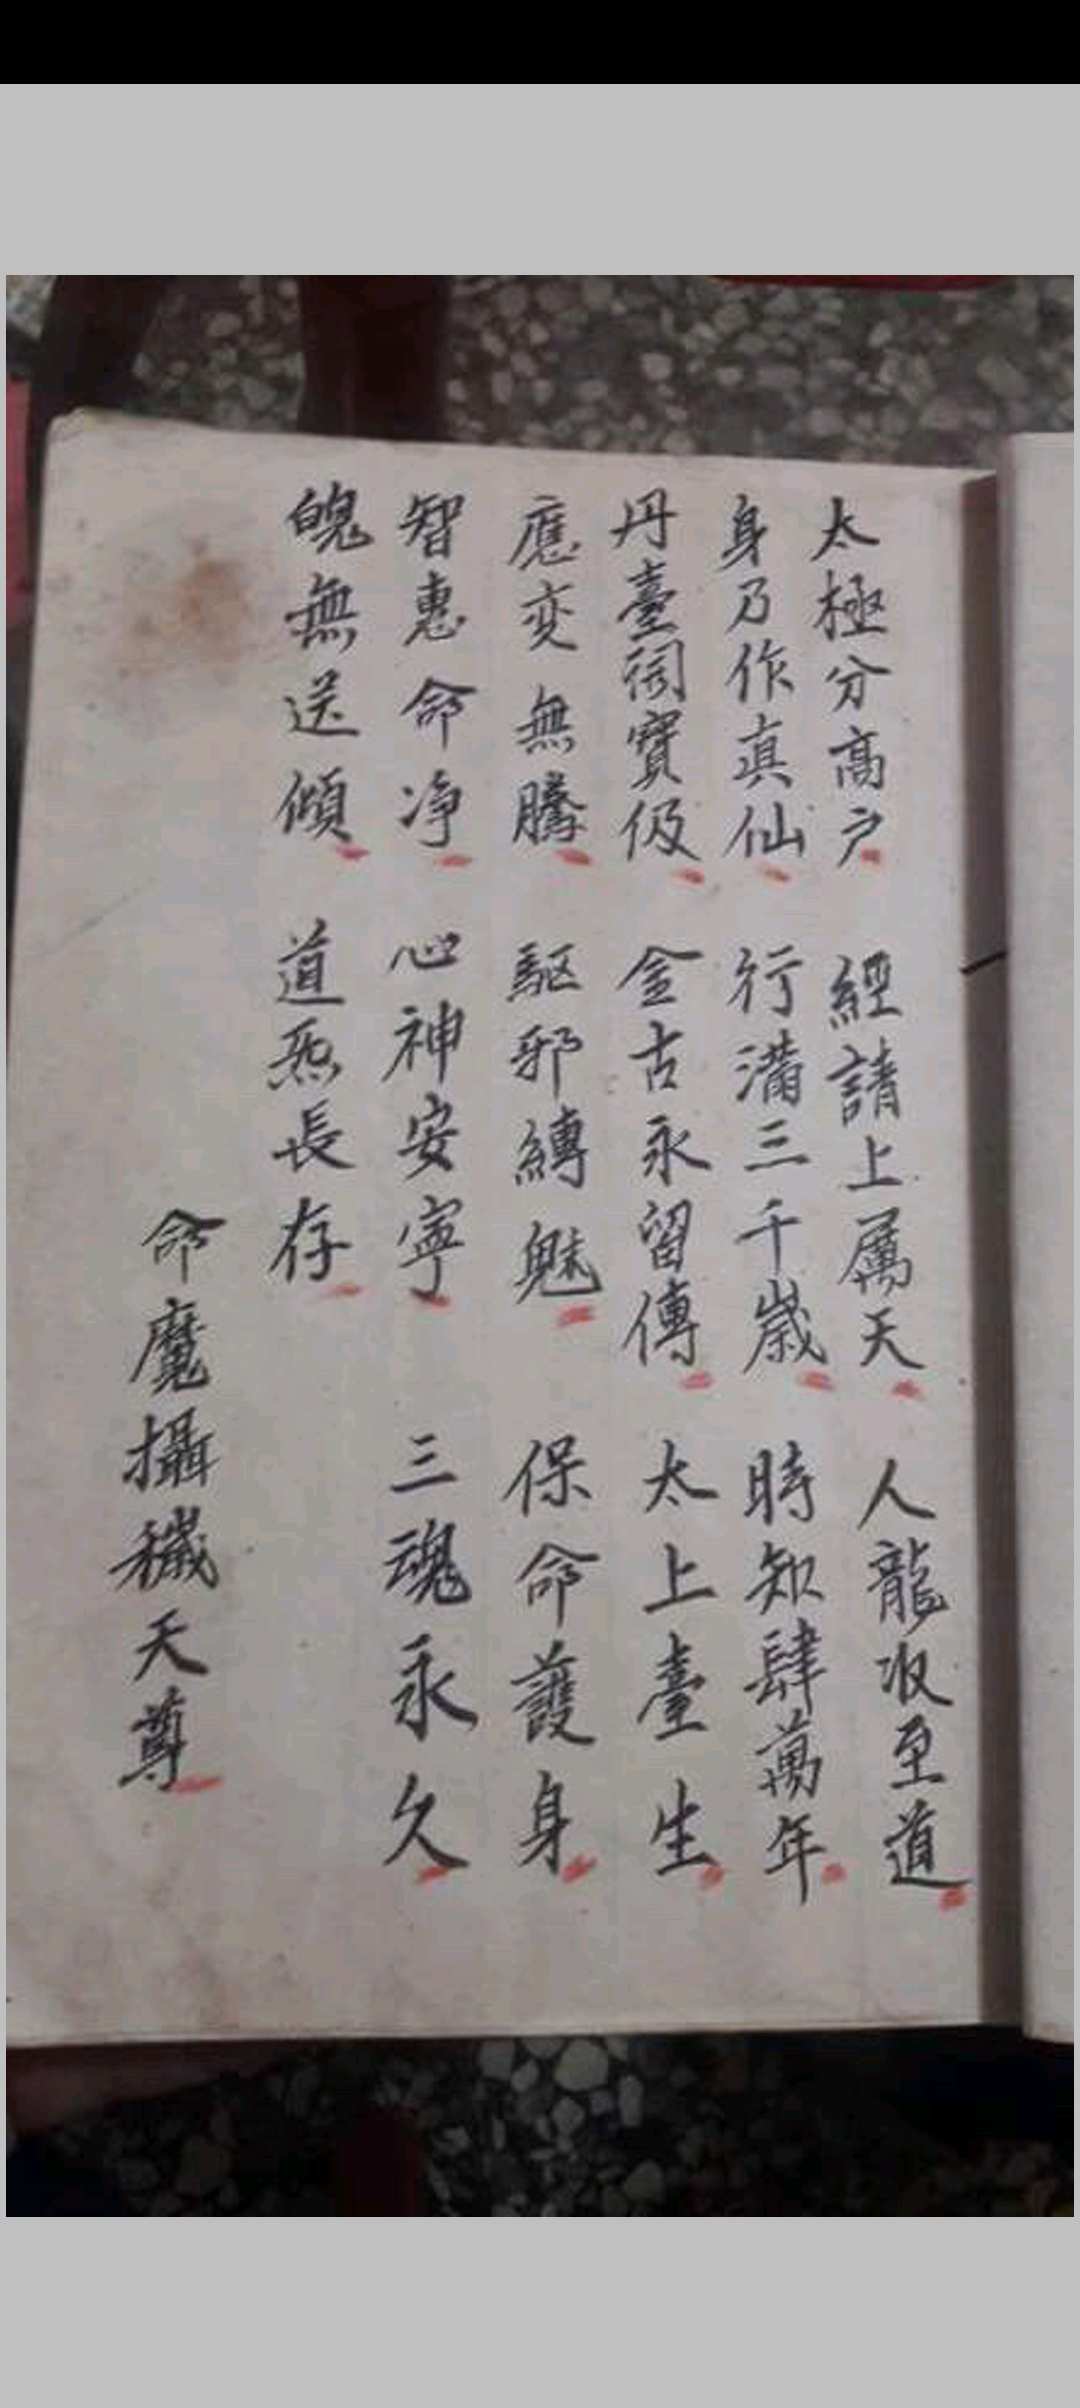 太極分高戶 經請上属天 人龍收至道
身乃作真仙 行滿三千歲 時知肆萬年
丹臺 寶伋 金古永留傳 太上臺生
應变無騰 駆邪縛魅 保命護身
智惠命净 心神安寧 三魂永久
魄無送傾 道炁長存
命魔攝穢天尊